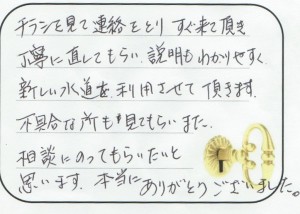 チラシを見て連絡をとり すぐ来て頂き
丁寧に直してもらい、説明もわかりやすく、
新しい水道を利用させて頂きます。
不具合な所も見てもらいまた、
相談にのってもらいたいと
思います。本当にありがとうございました。